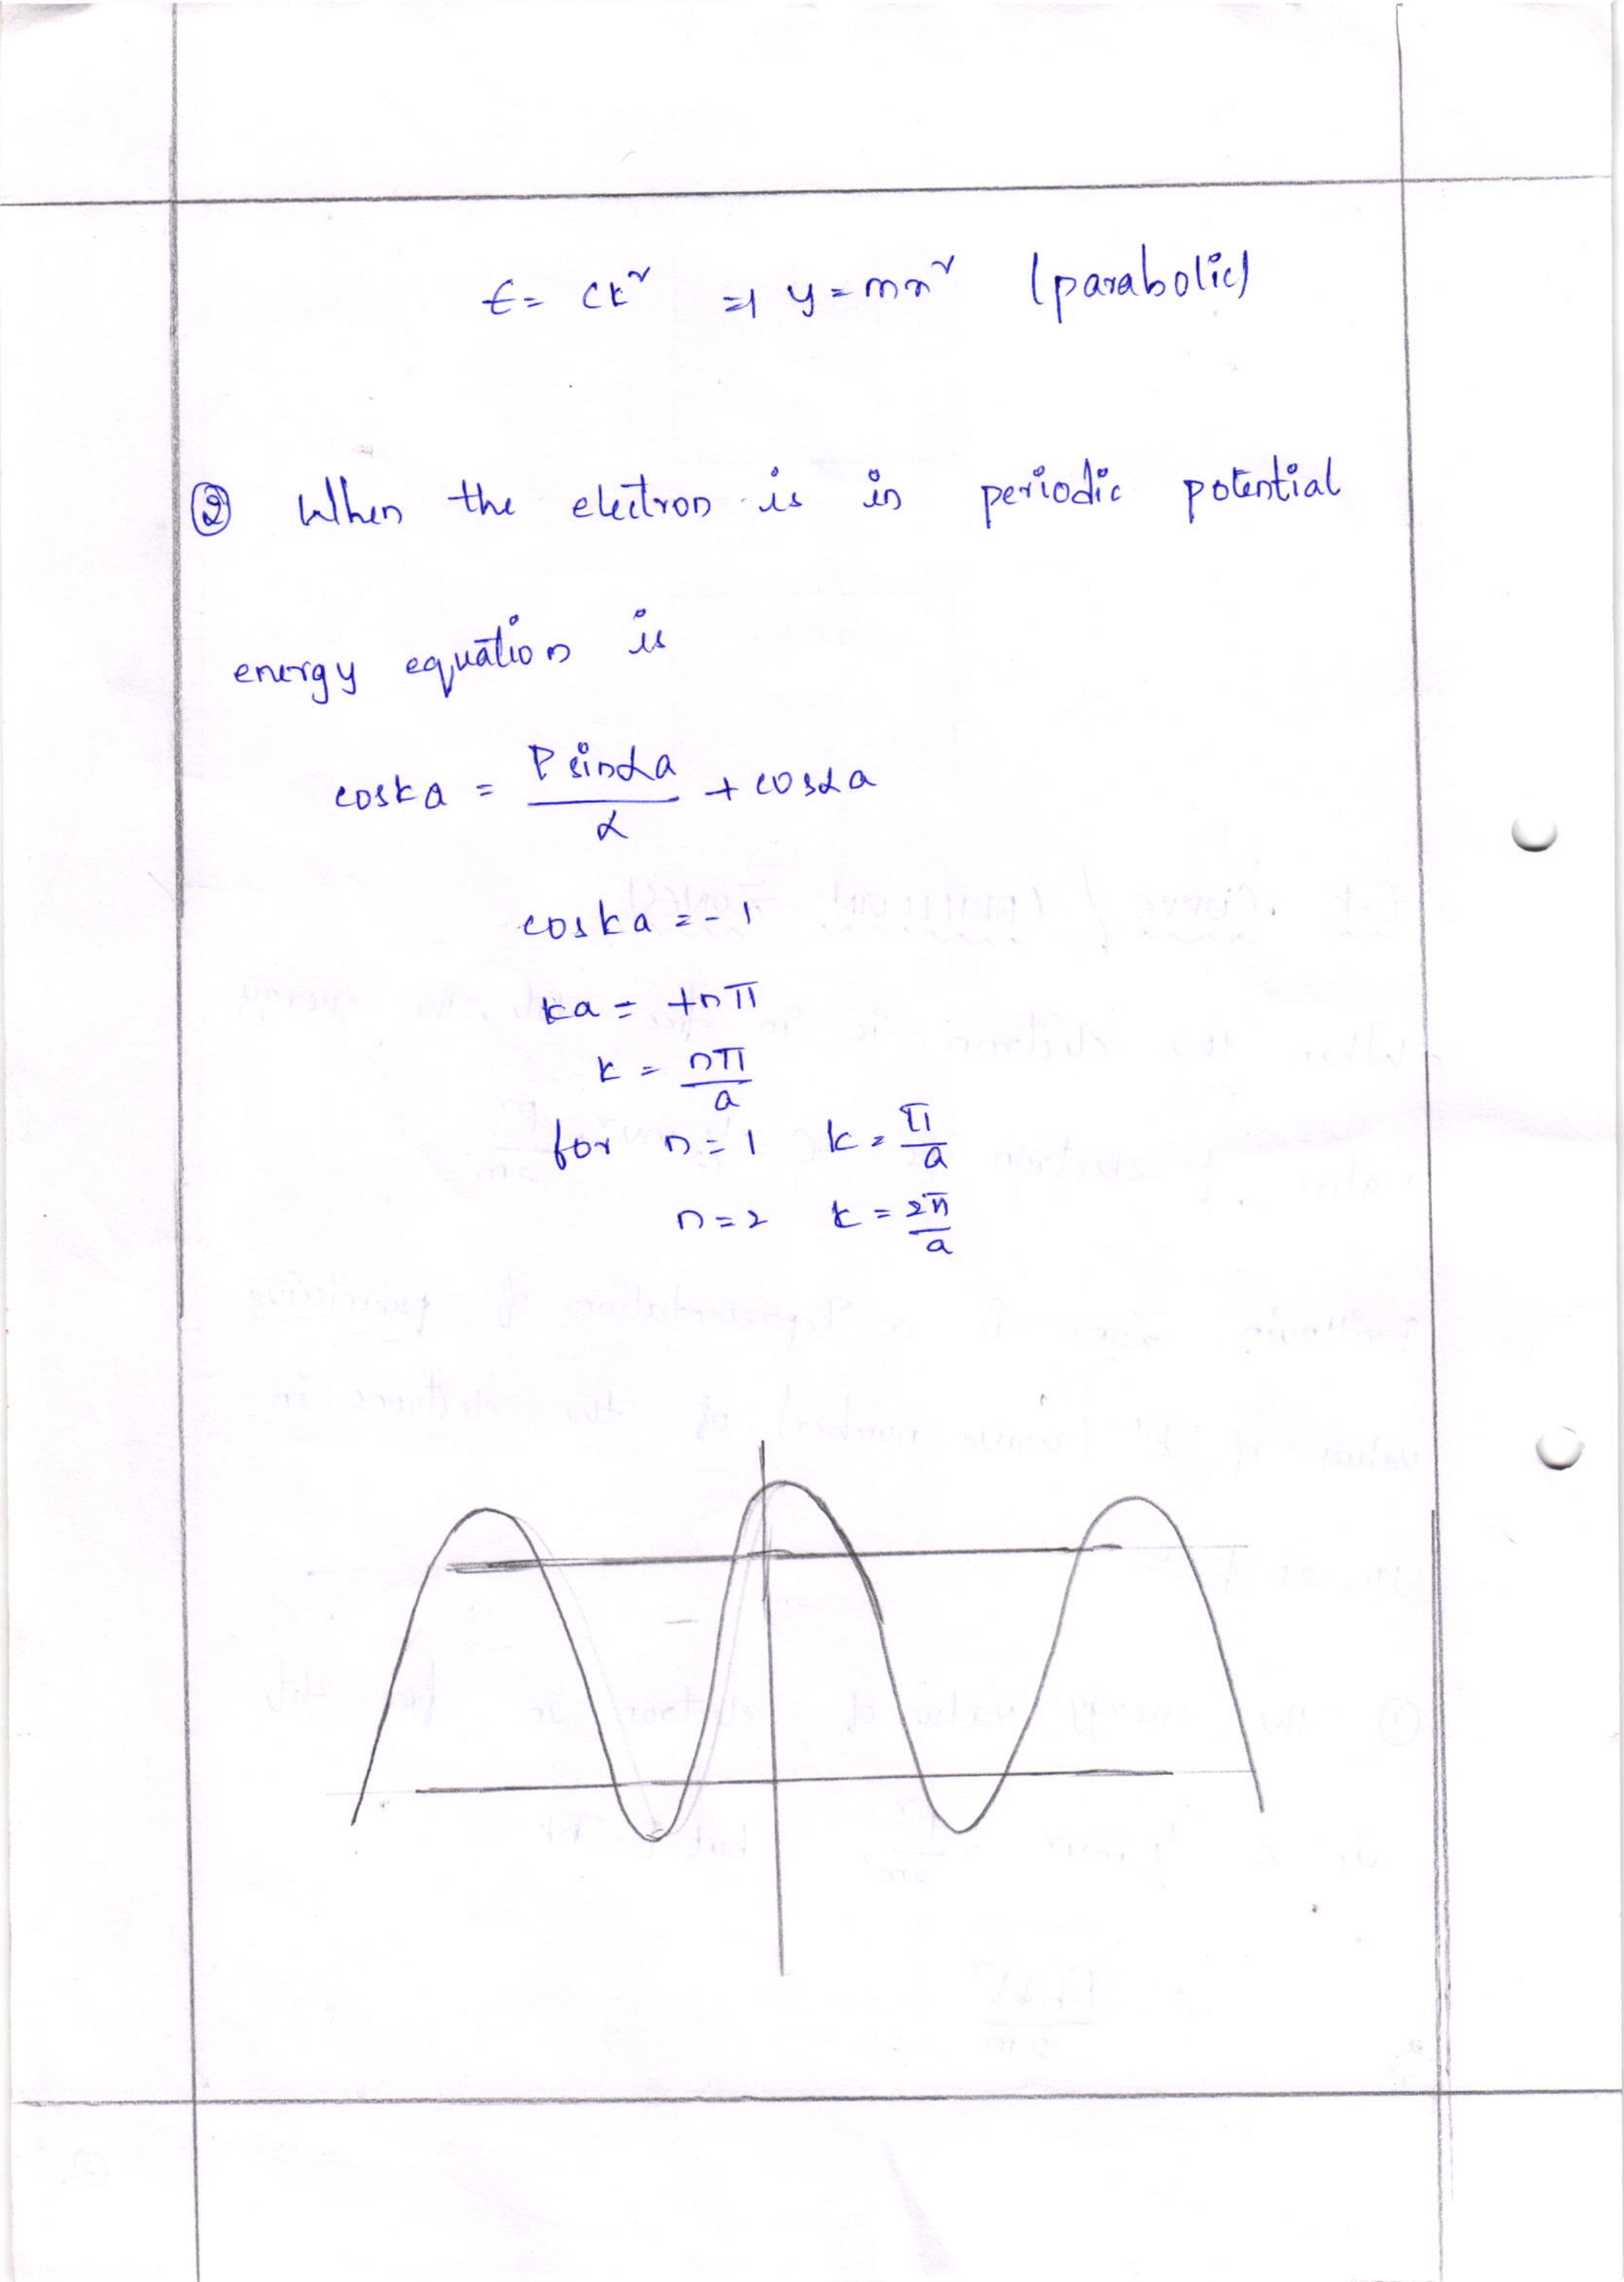 E = Ck² ⇒ y = mx² (parabolic)
② When the electron is in periodic potential
energy equation is
coska = P sinαa / α + cosαa
coska = -1
ka = ±nπ
k = nπ / a
for n = 1 k = π / a
n = 2 k = 2π / a